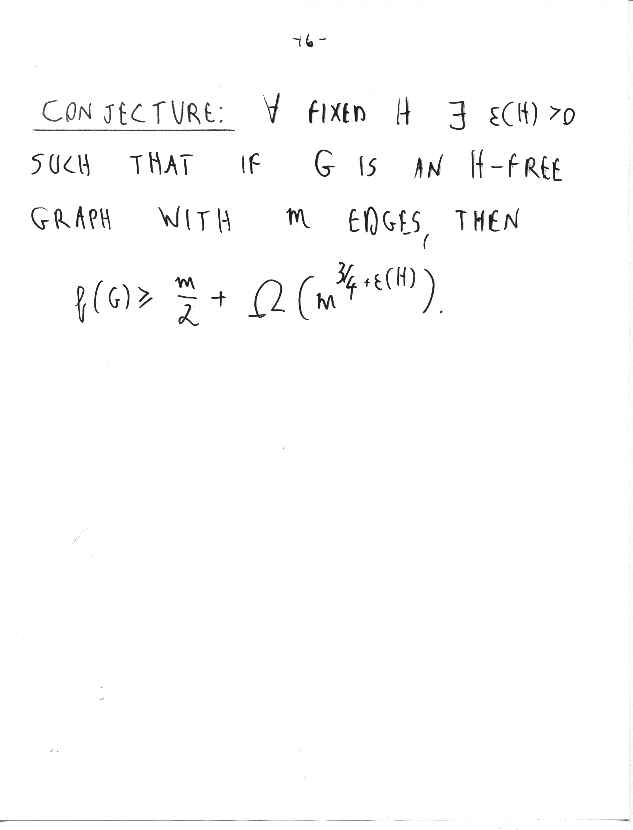 -16-
CONJECTURE: ∀ FIXED H ∃ ε(H) >0
SUCH THAT IF G IS AN H-FREE
GRAPH WITH m EDGES, THEN
f(G) ≥ m/2 + Ω(m^{3/4+ε(H)}).